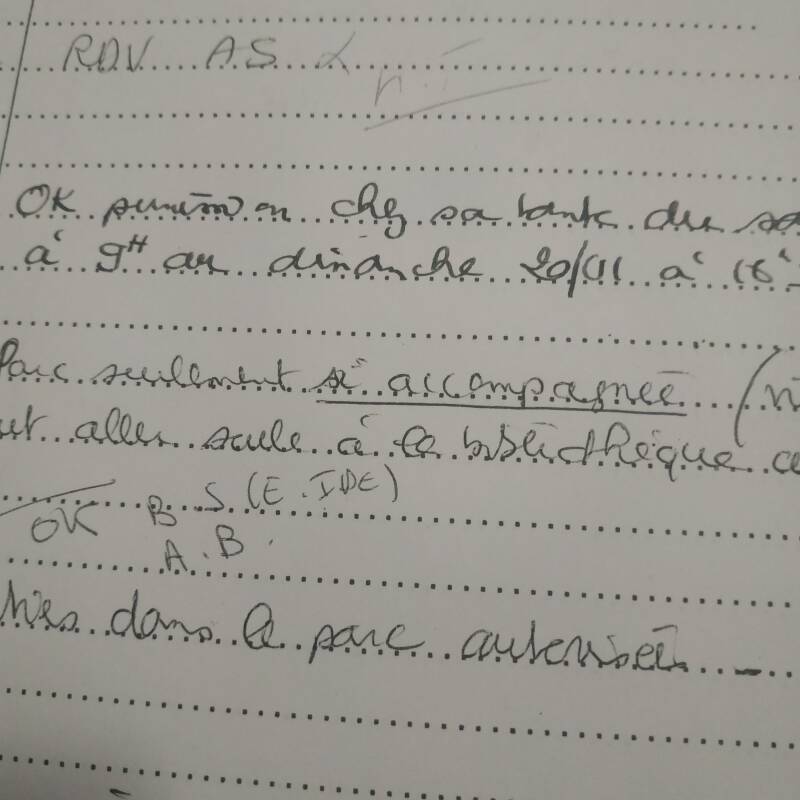 RDV A.S
OK permission chez sa tante du sa
à 9H au dimanche 20/01 à 16
Parc seulement si accompagnée (n
ut aller seule à la bibliothèque a
OK B S (E. IDE)
A. B.
dans le parc autorisées. -